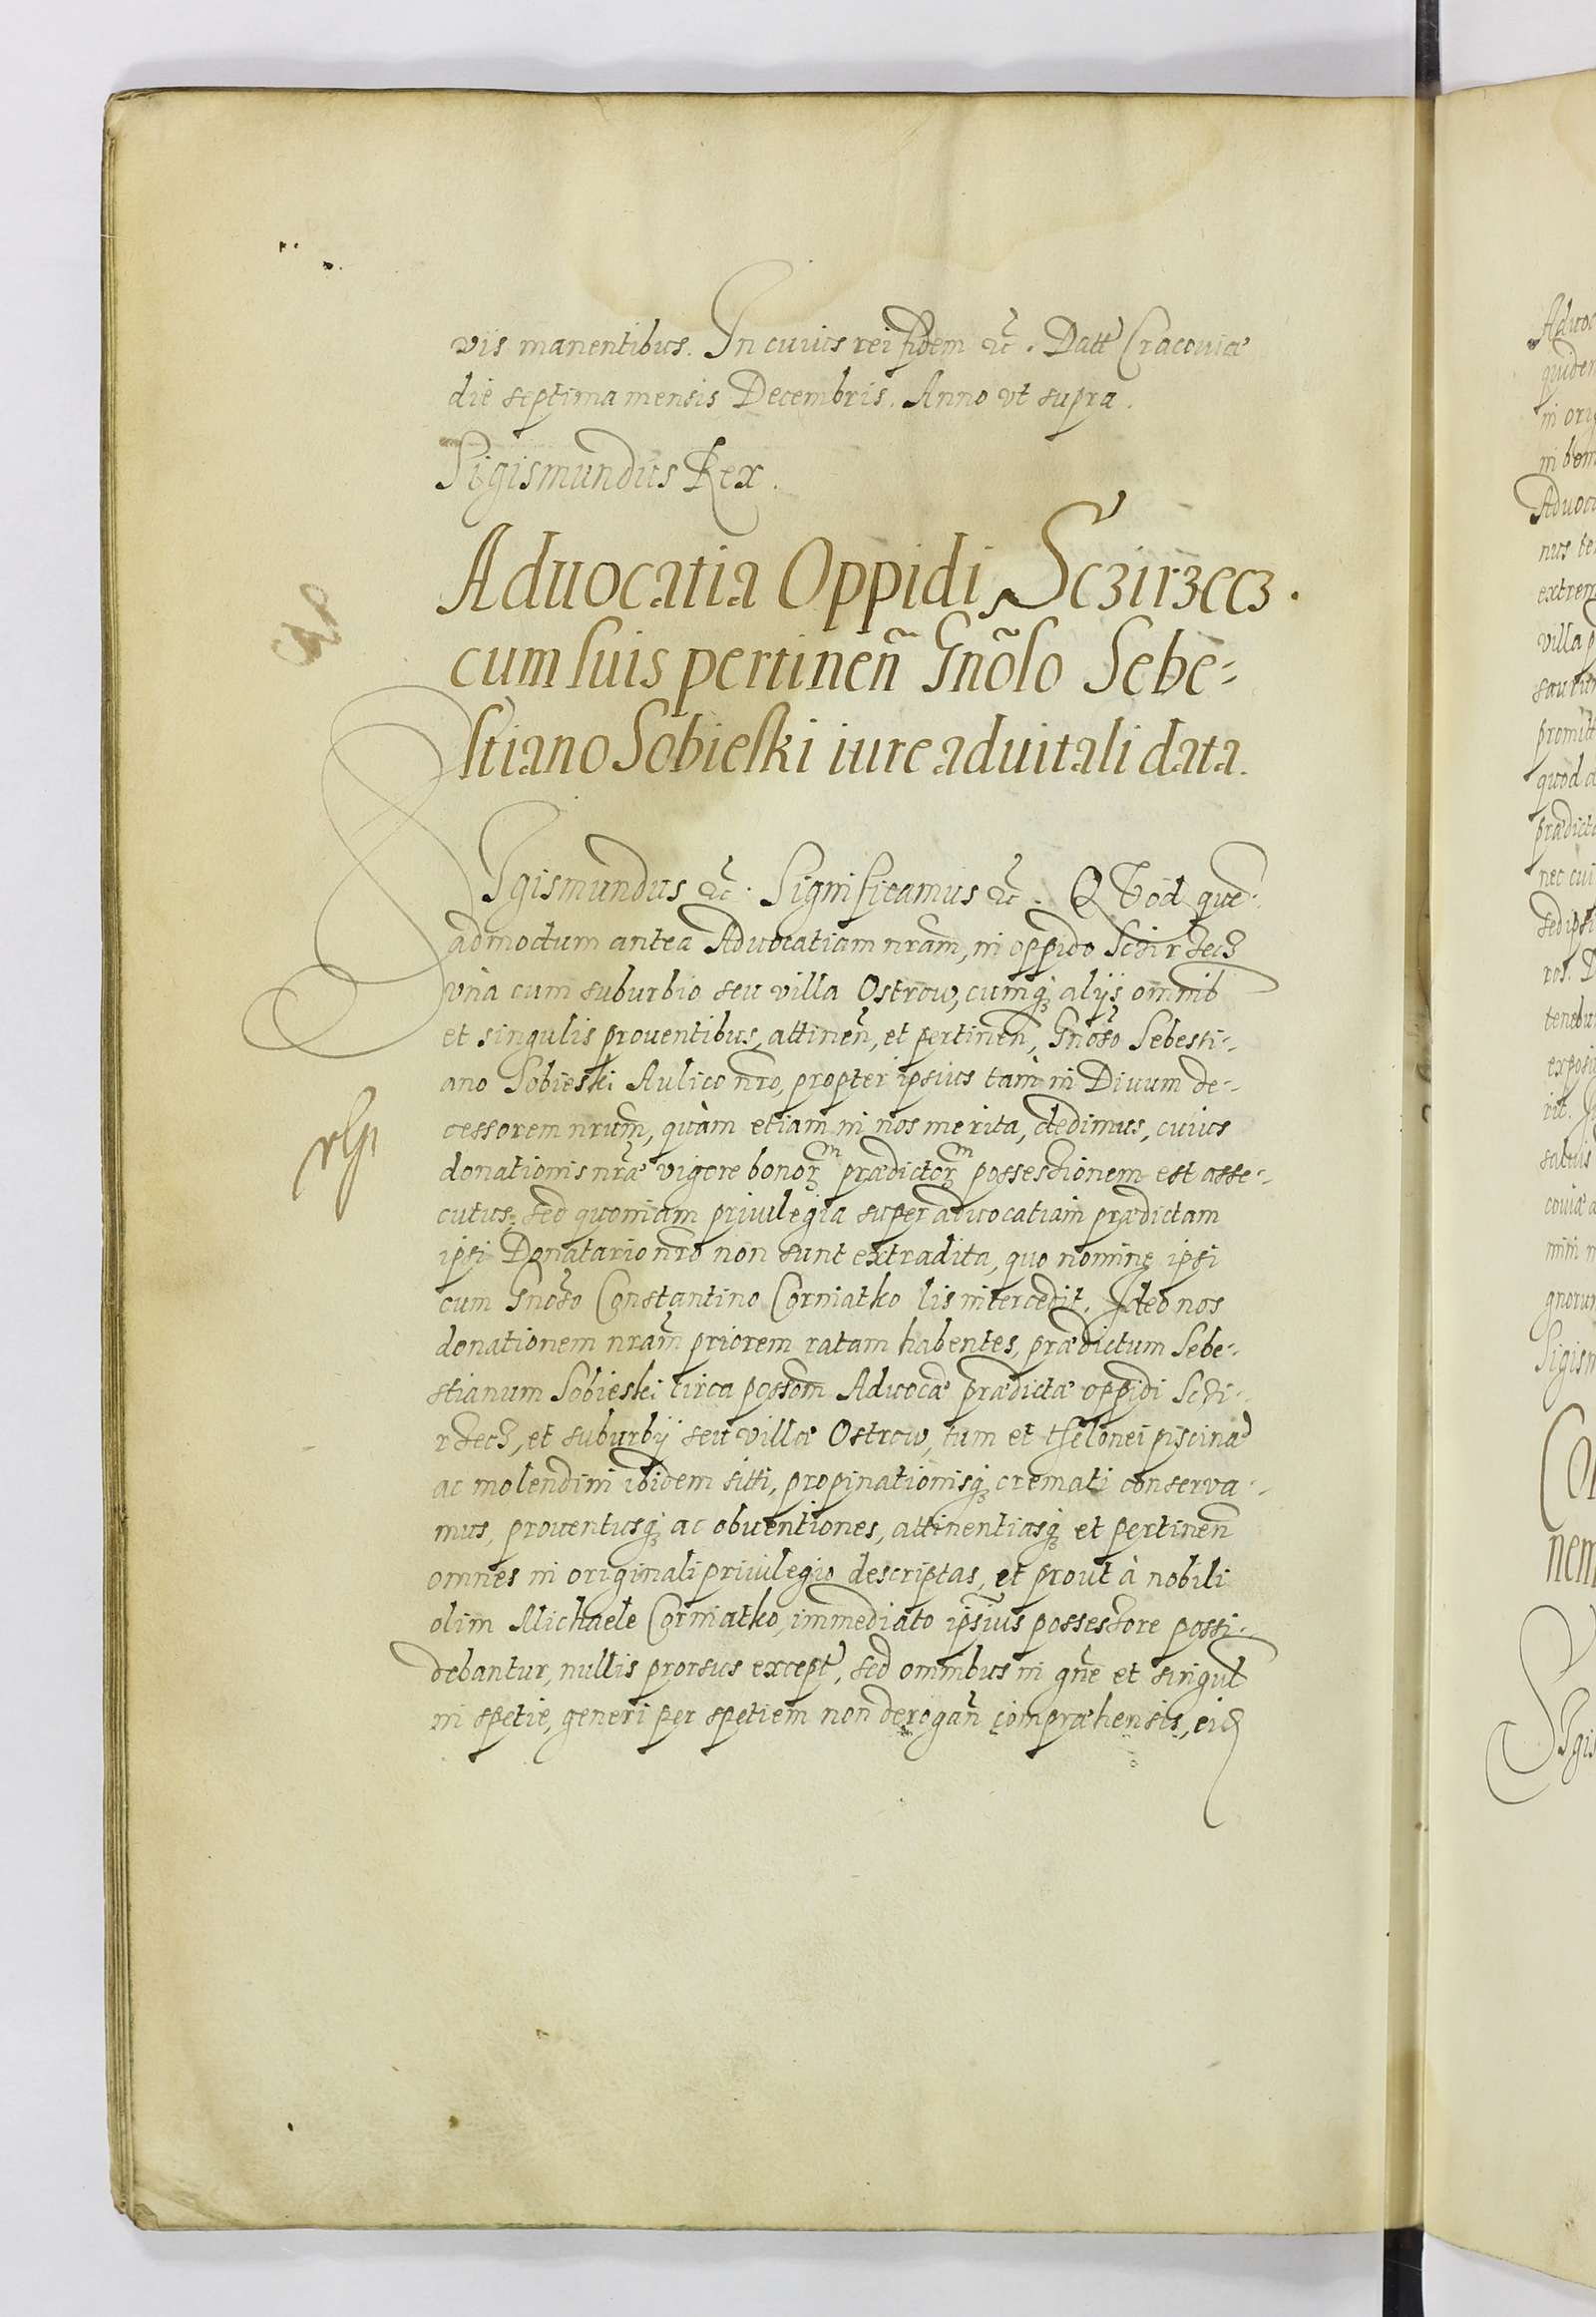 vis manentibus. In cuius rei fidem &c̃. Datt̃ Cracouiæ
die septima mensis Decembris. Anno vt supra.
Sigismundus Rex.
Aduocatia Oppidi Sczirzecz.
cum suis pertineñ Gñoso Sebe-
stiano Sobieski iure aduitali data.
SIgismundus &c̃. Significamus &c̃. QVod que-
admodum antea Aduocatiam nr̃am, in oppido Sczirzecz
vnà cum suburbio seu villa Ostrow, cumq; alijs omnib
et singulis prouentibus, attineñ, et pertineñ, Gñoso Sebesti-
ano Sobieski Aulico nr̃o, propter ipsius tam in Diuum de-
cessorem nr̃um, quàm etiam in nos merita, dedimus, cuius
donationis nr̃æ vigore bonorm̃ prædictorm̃ possessionem est asse-
cutus, sed quoniam priuilegia super aduocatiam prædictam
ipsi Donatario nr̃o non sunt extradita, quo nomine ipsi
cum Gñoso Constantino Corniatko lis intercedit. Ideo nos
donationem nr̃am priorem ratam habentes, prædictum Sebe-
stianum Sobieski circa possom̃ Aduocæ prædictæ oppidi Sczi-
rzecz, et suburbij seu villæ Ostrow, tum et thelonei piscinæ
ac molendini ibidem sitti, propinationisq; cremati conserva-
mus, prouentusq; ac obuentiones, attinentiasq; et pertineñ
omnes in originali priuilegio descriptas, et prout à nobili
olim Michaele Corniatko, immediato ipsius possessore possi-
debantur, nullis prorsus except̃, sed omnibus in gñe et singul̃
in spetie, generi per spetiem non derogañ compræhensis, eid